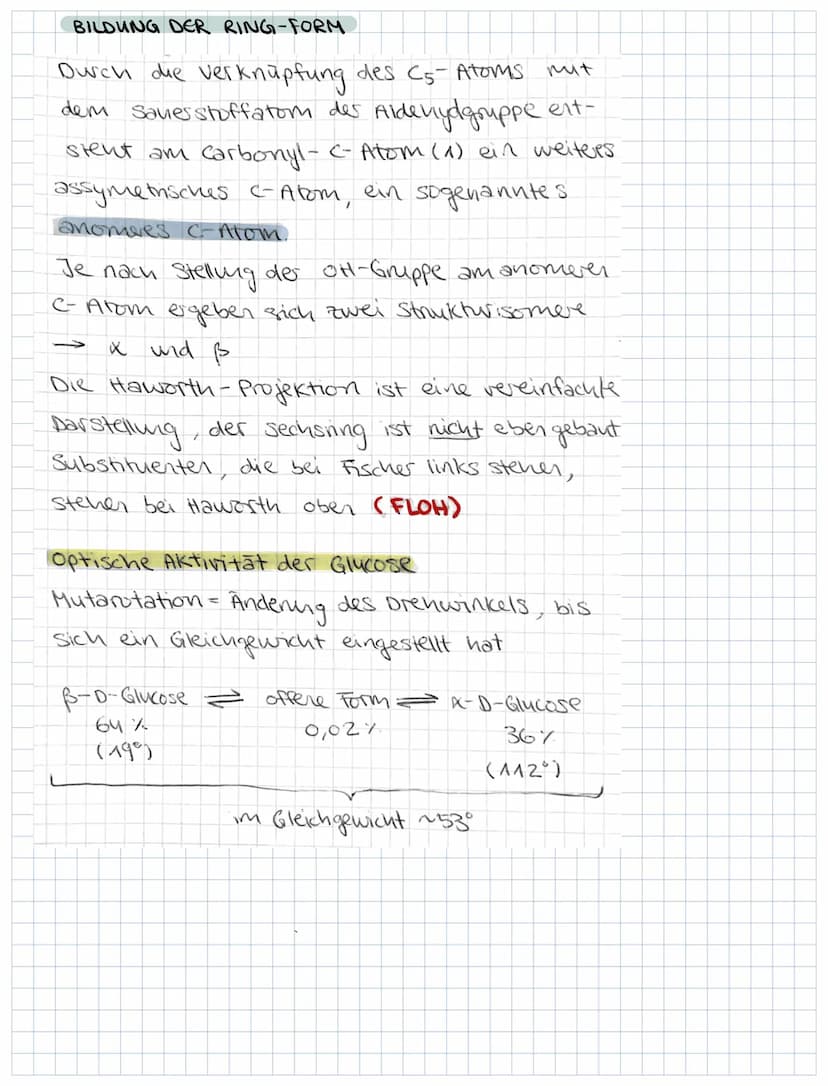 BILDUNG DER RING-FORM
Durch die Verknüpfung des C5-Atoms mit
dem Sauerstoffatom der Aldehydgruppe ent-
steht am Carbonyl-C-Atom (1) ein weiteres
assymetrisches C-Atom, ein sogenanntes
anomeres C-Atom.
Je nach Stellung der OH-Gruppe am anomeren
C-Atom ergeben sich zwei Strukturisomere
→ α und β
Die Haworth-Projektion ist eine vereinfachte
Darstellung, der Sechsring ist nicht eben gebaut
Substituenten, die bei Fischer links stehen,
stehen bei Haworth oben (FLOH)
Optische Aktivität der Glucose
Mutarotation = Änderung des Drehwinkels, bis
sich ein Gleichgewicht eingestellt hat
β-D-Glucose ⇌ offene Form ⇌ α-D-Glucose
64% 0,02% 36%
(19°) (112°)
im Gleichgewicht ~53°